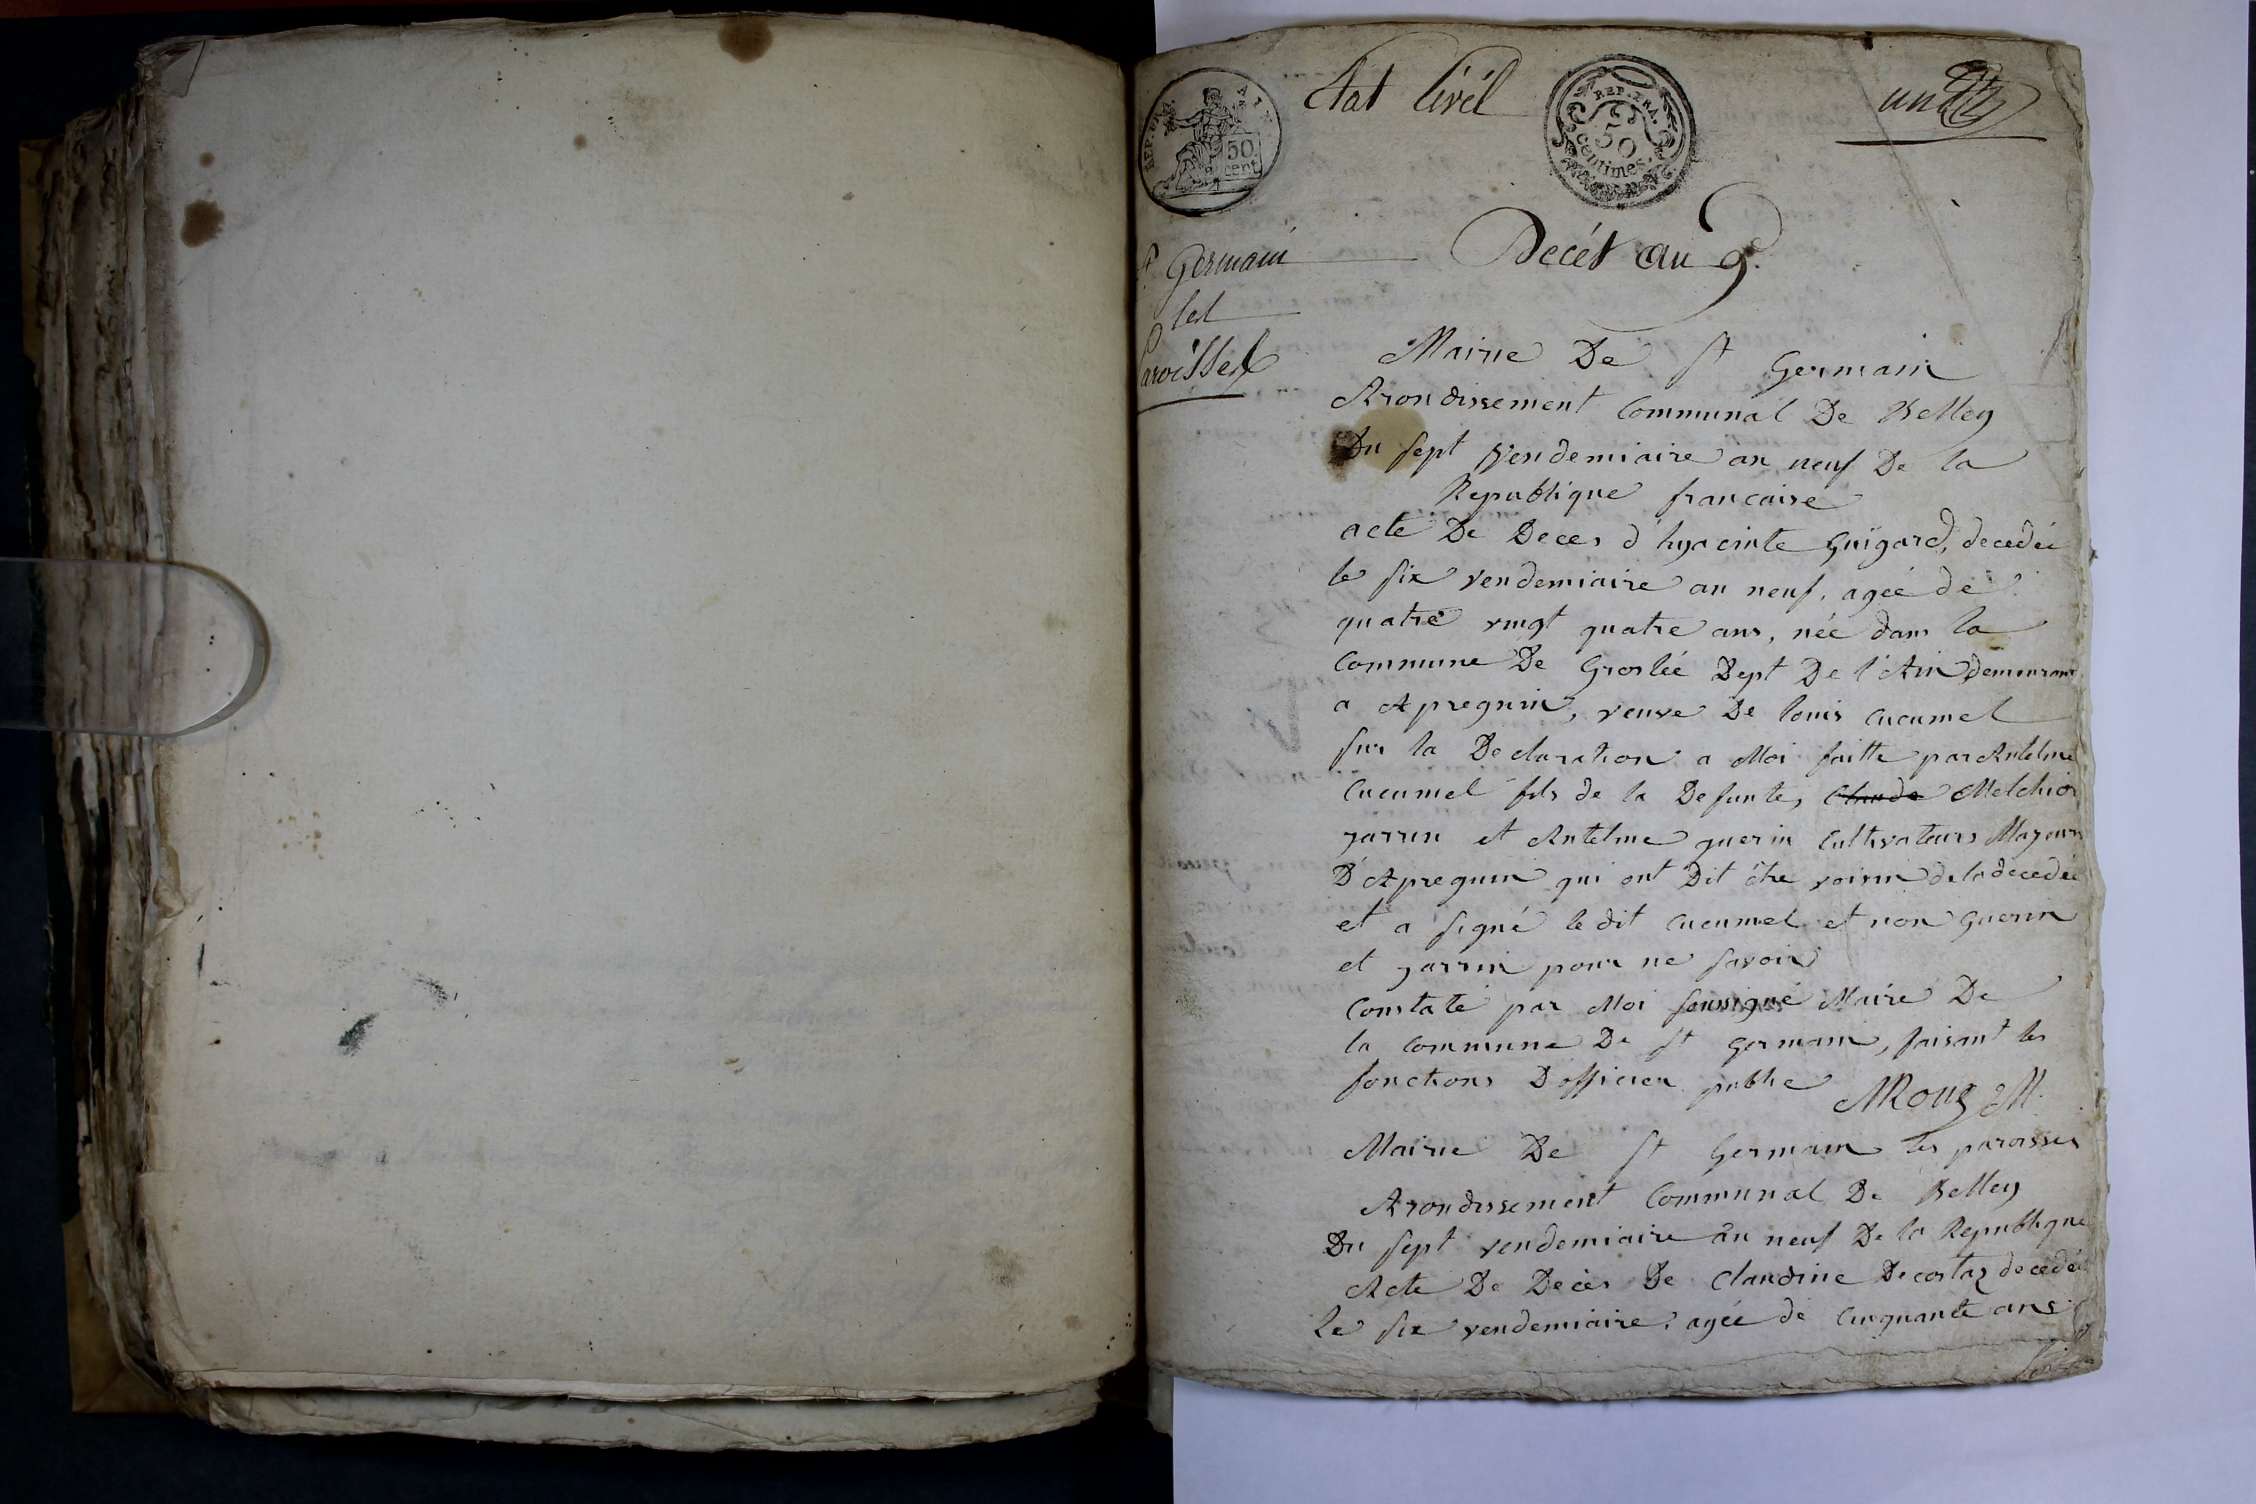 Etat Civil
REP. FRA.
50
centimes.
50
cent
un
St Germain
les
Paroisses
Décès an 9.
Mairie De St Germain
Arondissement Communal De Belley
Du sept vendemiaire an neuf De la
Republique francaise
acte De Deces d'hyacinte Guigard, decedée
le six vendemiaire an neuf, agée de
quatre vingt quatre ans, née dans la
Commune De Groslée Dept De l'Ain Demeurant
a Apregnin, veuve De louis Cucumel
sur la Declaration a Moi faitte par Antelme
Cucumel fils de la Defunte, Claude Melchior
garrin et Antelme guerin Cultivateurs Majeurs
D'Apregnin qui ont Dit être voisin de la decedée
et a signé le dit Cucumel et non Guerin
et garrin pour ne savoir
Constaté par Moi soussigné Maire De
la Commune De St Germain, faisant les
fonctions D'officier public
Mairie De St Germain les paroisses
Arondissement Communal De Belley
Du sept vendemiaire an neuf De la Republique
Acte De Decès De Claudine Decostaz decedée
Le six vendemiaire, agée de Cinquante ans